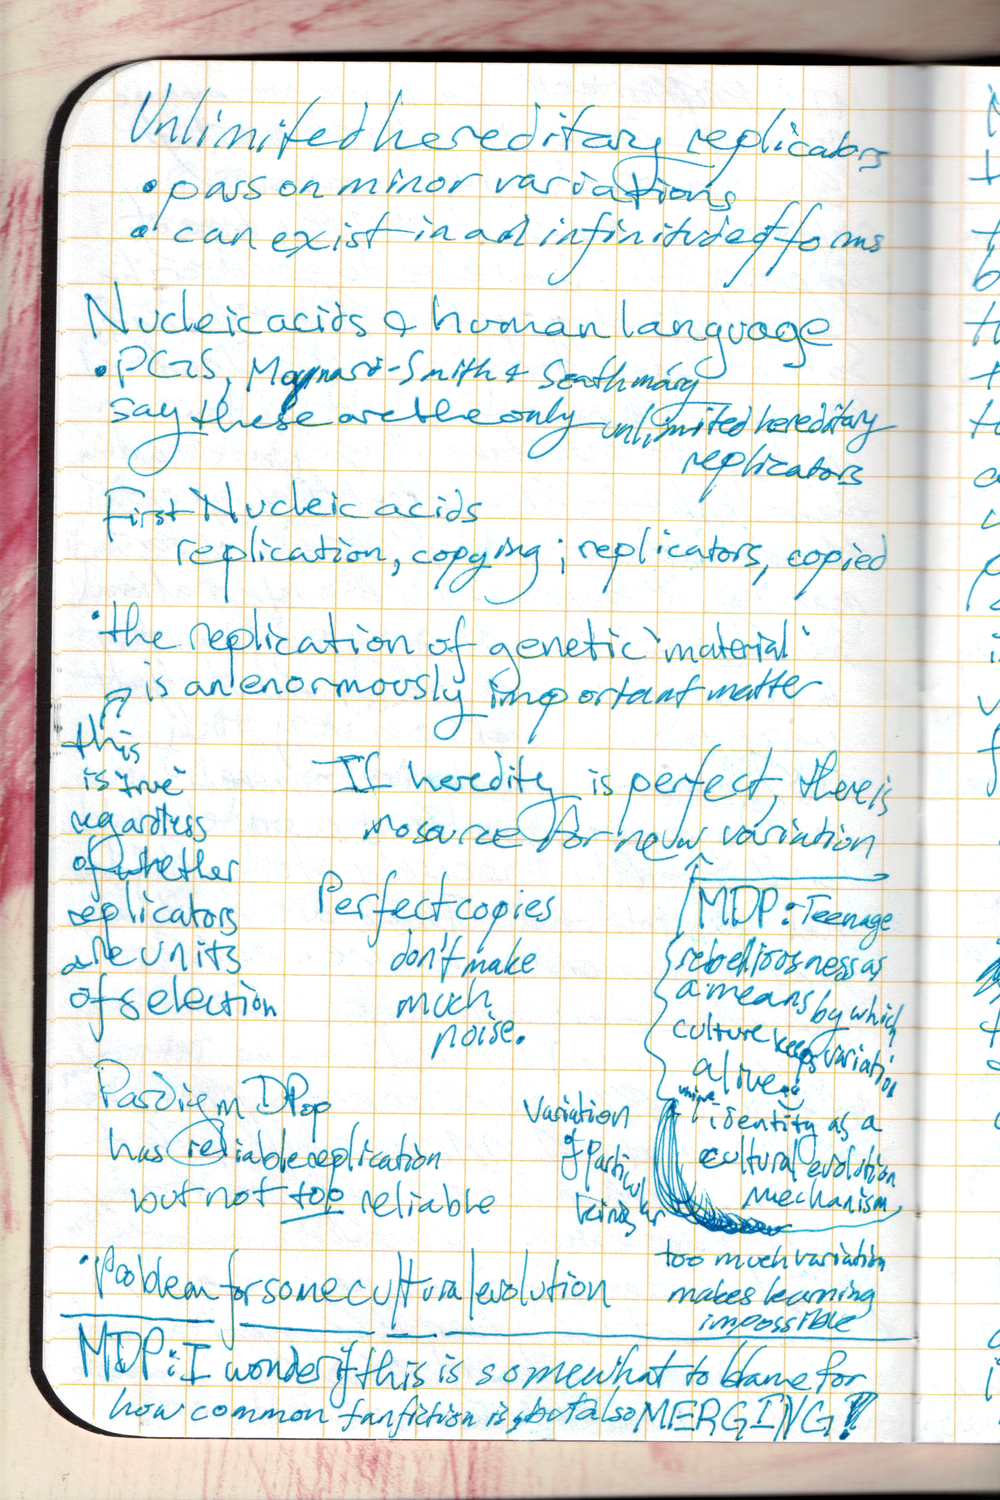 Unlimited hereditary replicators
• pass on minor variations
• can exist in an infinitude of forms
Nucleic acids & human language
• PGS, Maynard-Smith & Szathmáry
say these are the only unlimited hereditary
replicators
First Nucleic acids
replication, copying; replicators, copied
• the replication of genetic "material"
is an enormously important matter
this
is "true"
regardless
of whether
replicators
are units
of selection
If heredity is perfect, there is
no source for new variation
Perfect copies
don't make
much
noise.
MDP: Teenage
rebelliousness as
a means by which
culture keeps variation
alive
unique identity as a
cultural evolution
mechanism
Variation
of particular
kinds
too much variation
makes learning
impossible
Paradigm DPop
has reliable replication
but not too reliable
• Problem for some cultural evolution
MDP: I wonder if this is somewhat to blame for
how common fanfiction is, but also MERGING!